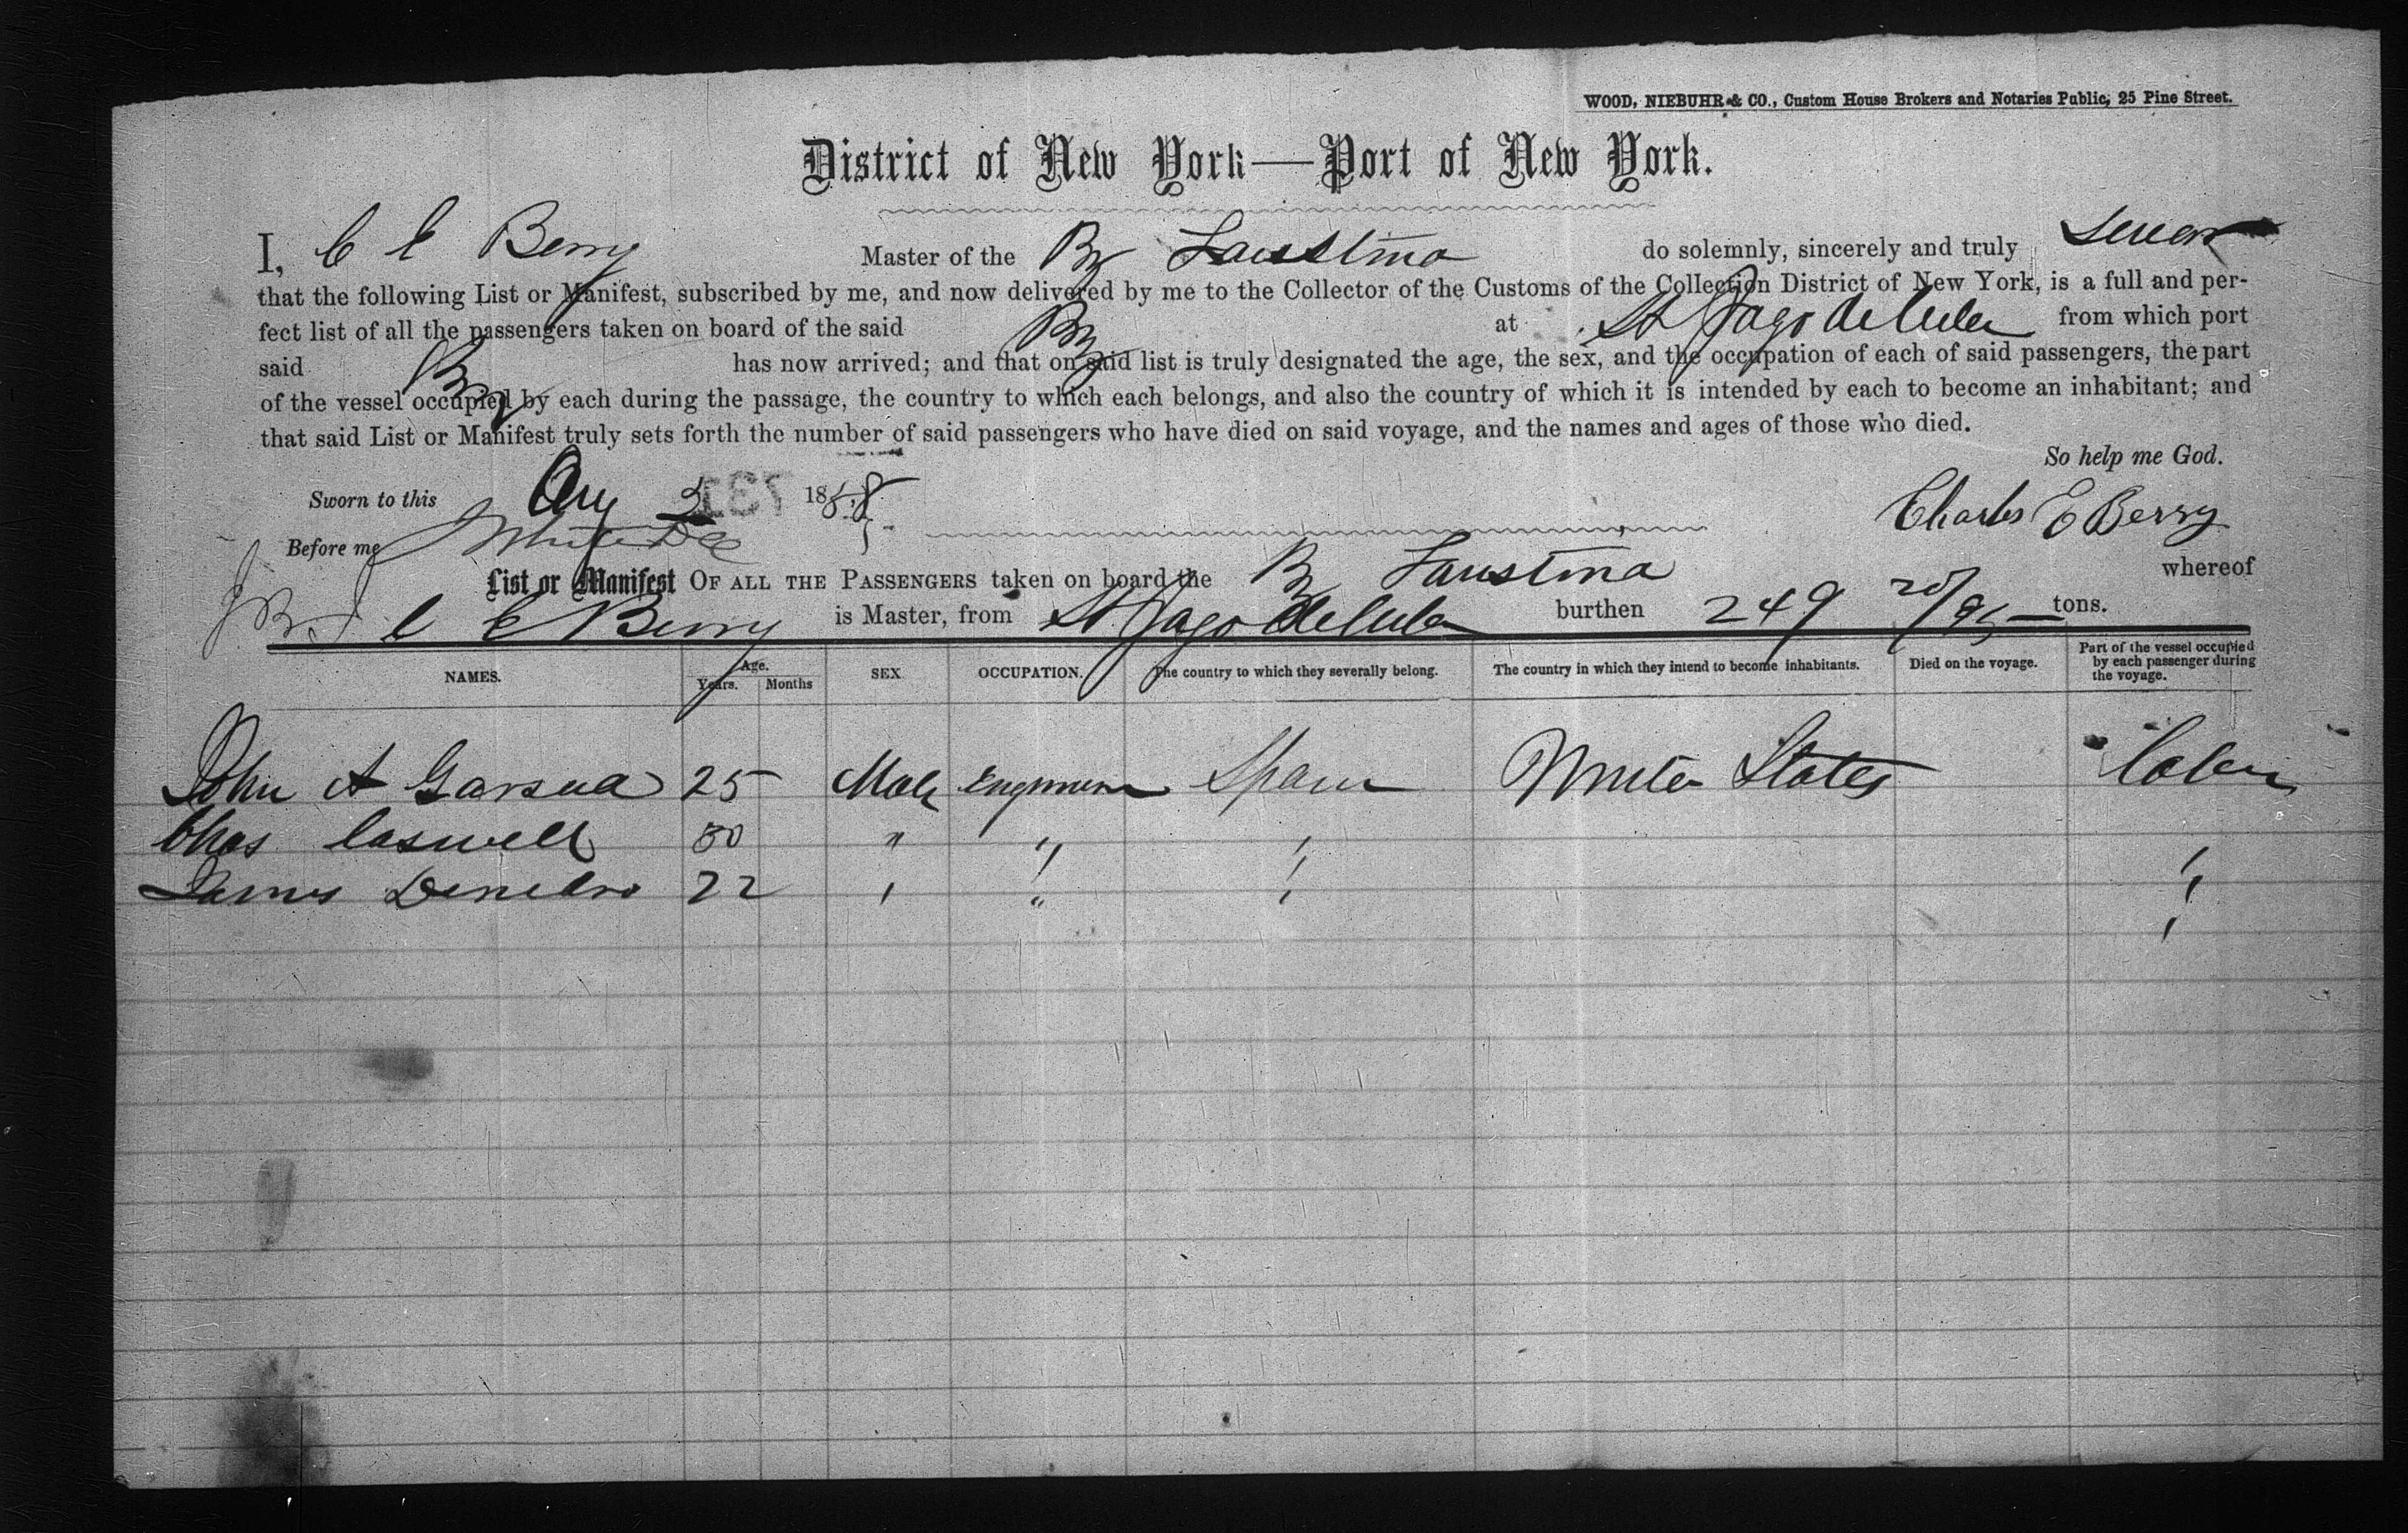 WOOD, NIEBUHR & CO., Custom House Brokers and Notaries Public, 25 Pine Street.
District of New York—Port of New York.
I, C E Berry Master of the Br Faustina do solemnly, sincerely and truly swear
that the following List or Manifest, subscribed by me, and now delivered by me to the Collector of the Customs of the Collection District of New York, is a full and per-
fect list of all the passengers taken on board of the said Brg at St Jago de Cuba from which port
said Brg has now arrived; and that on said list is truly designated the age, the sex, and the occupation of each of said passengers, the part
of the vessel occupied by each during the passage, the country to which each belongs, and also the country of which it is intended by each to become an inhabitant; and
that said List or Manifest truly sets forth the number of said passengers who have died on said voyage, and the names and ages of those who died.
So help me God.
Sworn to this Aug 2 1858
Charles E Berry
Before me
List or Manifest OF ALL THE PASSENGERS taken on board the Br Faustina whereof
C E Berry is Master, from St Jago de Cuba burthen 249 20/95 tons.
NAMES. Age. Years. Months SEX. OCCUPATION. The country to which they severally belong. The country in which they intend to become inhabitants. Died on the voyage. Part of the vessel occupied by each passenger during the voyage.
John A Garsua 25 Male Engineer Spain United States Cabin
Chas Caswell 30 " " "
James 22 " " "